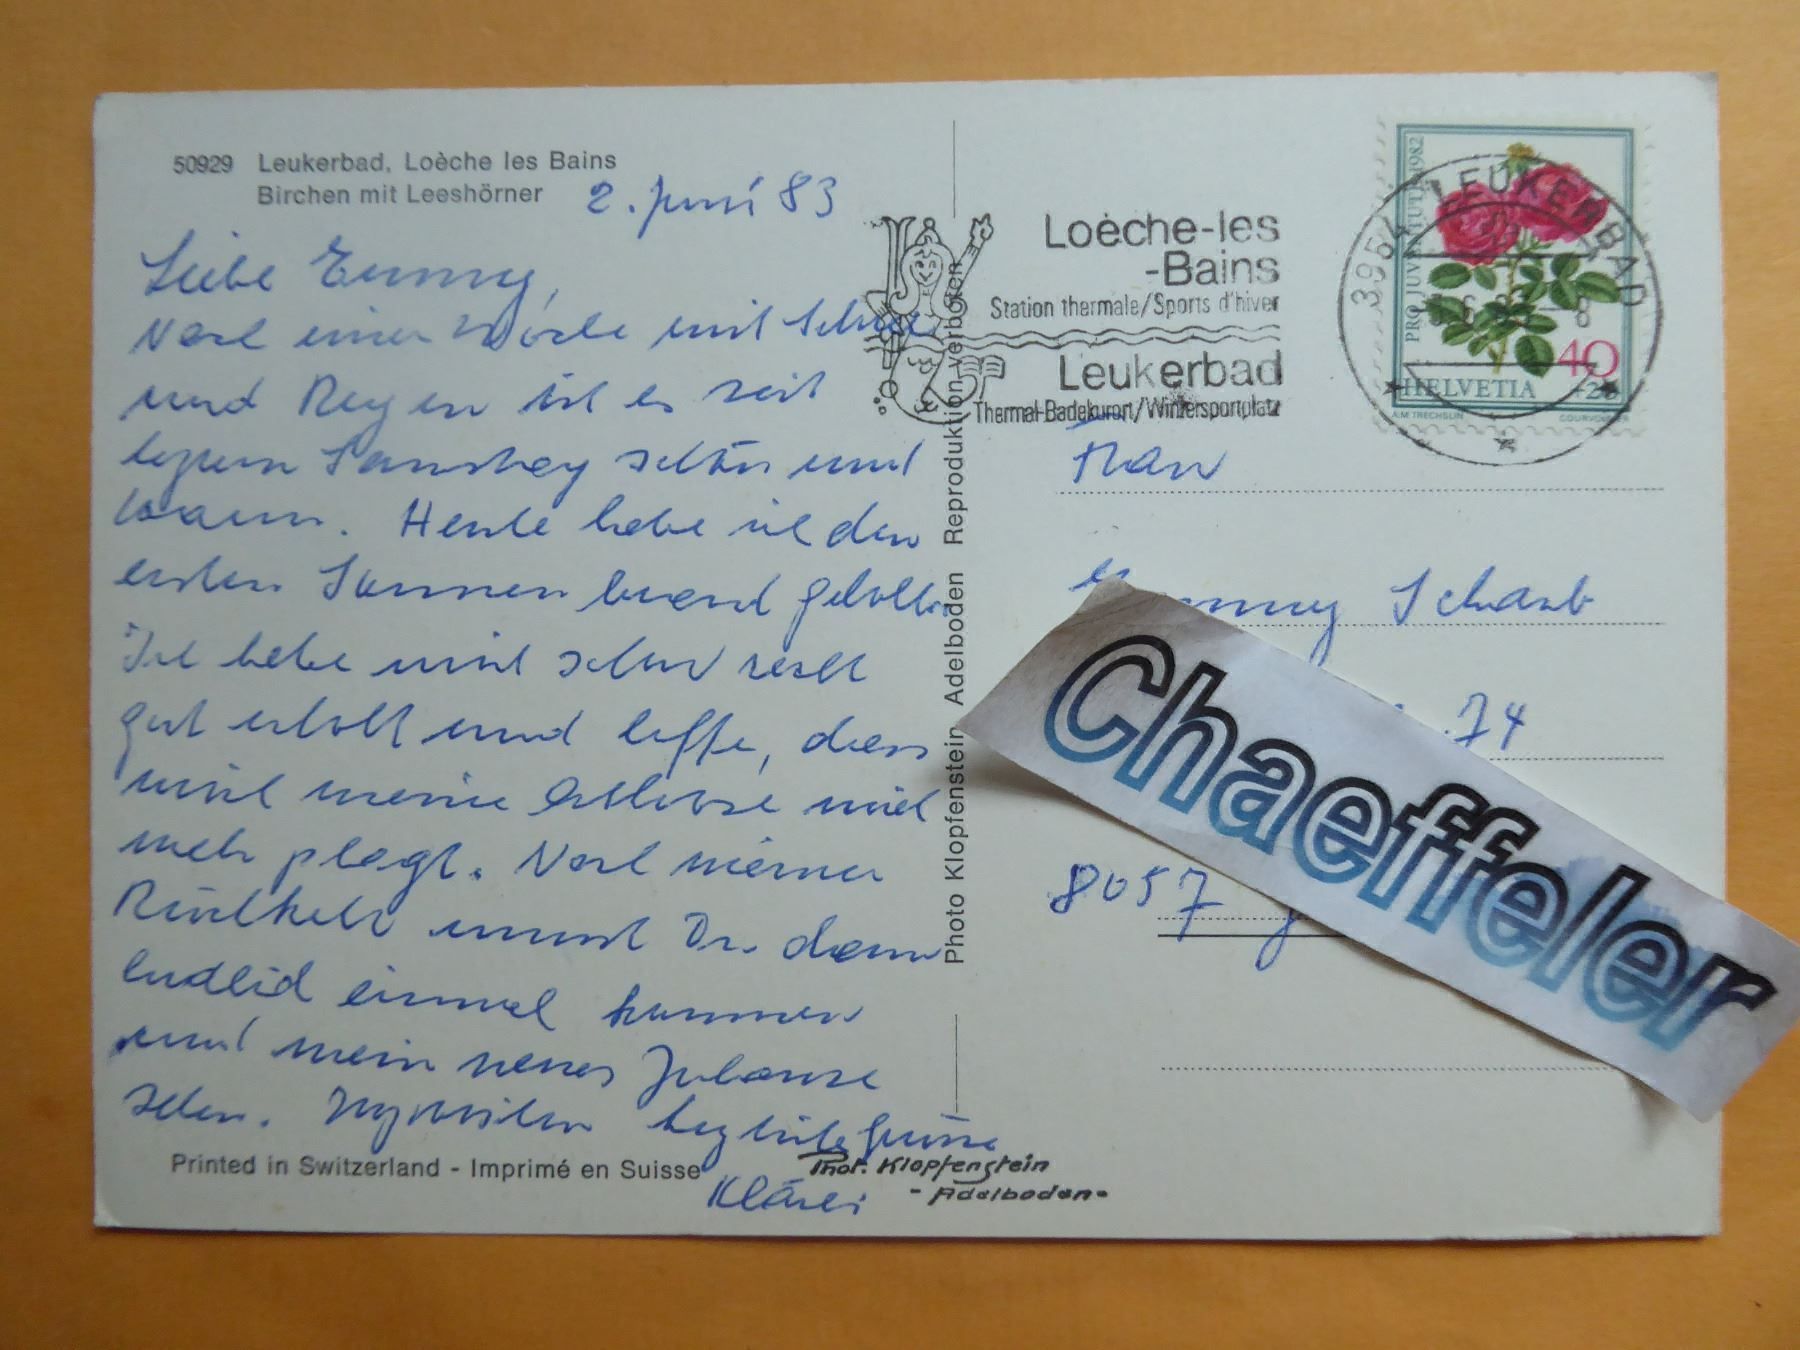 50929 Leukerbad, Loèche les Bains
Birchen mit Leeshörner
2. Juni 83
Liebe Emmy,
Nach einer Woche mit Schnee
und Regen ist es seit
letztem Samstag schön und
warm. Heute habe ich den
ersten Sonnenbrand geholt.
Ich habe mich sehr recht
gut erholt und hoffe, dass
mich meine Arthrose nicht
mehr plagt. Nach meiner
Rückkehr musst Du dann
endlich einmal kommen
und mein neues Zuhause
sehen. Inzwischen herzliche Grüsse
Kläri
Printed in Switzerland - Imprimé en Suisse
Phot. Klopfenstein
- Adelboden -
Photo Klopfenstein Adelboden Reproduktion verboten
Loèche-les
-Bains
Station thermale/Sports d'hiver
Leukerbad
Thermal-Badekurort/Wintersportplatz
3954 LEUKERBAD
PRO JUVENTUTE 1982
40
+20
HELVETIA
A.M. TRECHSLIN
COURVOISIER
Frau
Emmy Schaub
74
8057
Chaeffeler